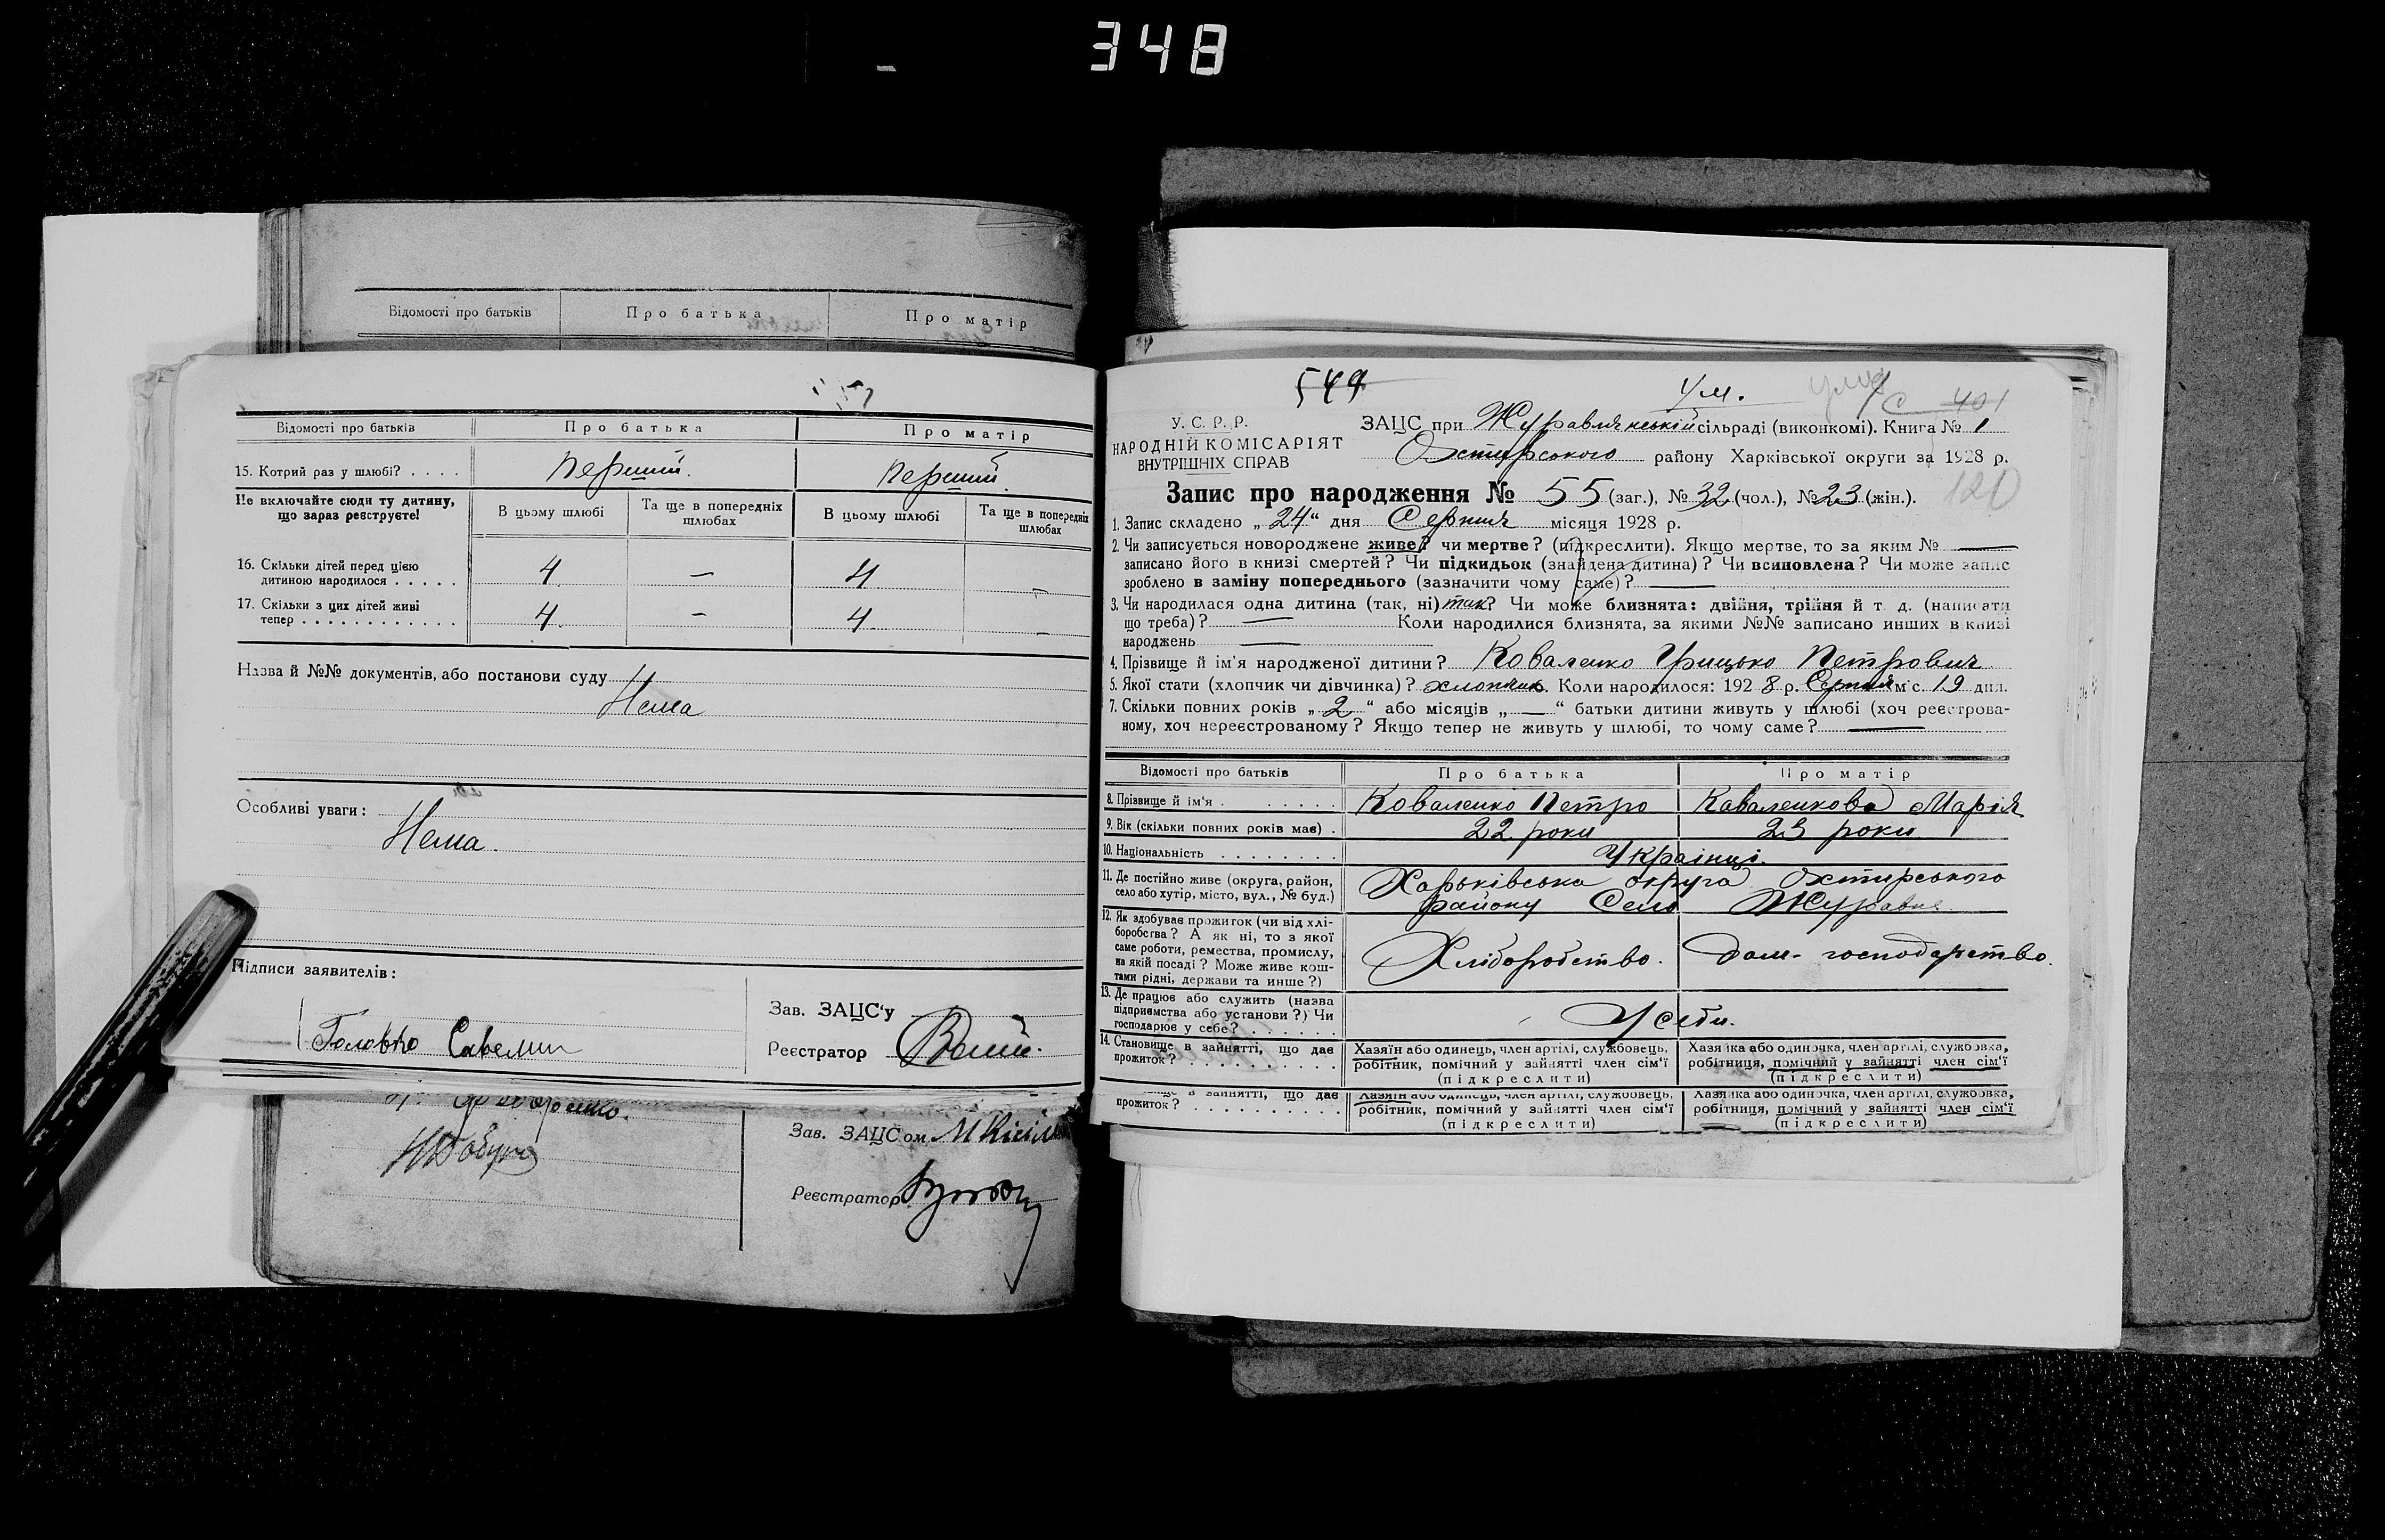 348
Відомості про батьків Про батька Про матір
Відомості про батьків Про батька Про матір
15. Котрий раз у шлюбі? . . . . Перший. Перший.
Не включайте сюди ту дитину, що зараз реєструєте!
В цьому шлюбі Та ще в попередніх шлюбах В цьому шлюбі Та ще в попередніх шлюбах
16. Скільки дітей перед цією
дитиною народилося . . . . . 4 — 4 —
17. Скільки з цих дітей живі
тепер . . . . . . . . . . . . 4 — 4 —
Назва й №№ документів, або постанови суду
Нема
Особливі уваги:
Нема.
Підписи заявителів:
Зав. ЗАЦС'у
Головко Савелий
Реєстратор
Зав. ЗАЦСом
Реєстратор
549
Ум.
С 401
У. С. Р. Р.
НАРОДНІЙ КОМІСАРІЯТ
ВНУТРІШНІХ СПРАВ
ЗАЦС при Журавлянській сільраді (виконкомі). Книга № 1
Охтирського району Харківської округи за 1928 р.
120
Запис про народження № 55 (заг.), № 32 (чол.), № 23 (жін.).
1. Запис складено „ 24 “ дня Серпня місяця 1928 р.
2. Чи записується новороджене живе? чи мертве? (підкреслити). Якщо мертве, то за яким № —
записано його в книзі смертей? Чи підкидьок (знайдена дитина)? Чи всиновлена? Чи може запис
зроблено в заміну попереднього (зазначити чому саме)? —
3. Чи народилася одна дитина (так, ні) так? Чи може близнята: двійня, трійня й т. д. (написати
що треба)? — Коли народилися близнята, за якими №№ записано инших в книзі
народжень —
4. Прізвище й ім'я народженої дитини? Коваленко Грицько Петрович
5. Якої стати (хлопчик чи дівчинка)? хлопчик. Коли народилося: 1928 р. Серпня м'с. 19 дня.
7. Скільки повних років „ 2 “ або місяців „ — “ батьки дитини живуть у шлюбі (хоч реєстрова-
ному, хоч нереєстрованому? Якщо тепер не живуть у шлюбі, то чому саме? —
Відомості про батьків Про батька Про матір
8. Прізвище й ім'я . . . . . . Коваленко Петро Коваленкова Марія
9. Вік (скільки повних років має) . 22 роки 23 роки
10. Національність . . . . . . . . Українці.
11. Де постійно живе (округа, район,
село або хутір, місто, вул., № буд.)
Харьківська округа Охтирського
району Село Журавне
12. Як здобуває прожиток (чи від хлі-
боробства? А як ні, то з якої
саме роботи, ремества, промислу,
на якій посаді? Може живе кош-
тами рідні, держави та инше?)
Хліборобство. Дом- господарство.
13. Де працює або служить (назва
підприємства або установи?) Чи
господарює у себе? . . . . . .
У себи.
14. Становище в зайнятті, що дає
прожиток? . . . . . . . . . .
Хазяїн або одинець, член артілі, службовець,
робітник, помічний у зайнятті член сім'ї
(підкреслити)
Хазяйка або одиночка, член артілі, службовка,
робітниця, помічний у зайнятті член сім'ї
(підкреслити)
в зайнятті, що дає
прожиток? . . . . . . . . . .
Хазяїн або одинець, член артілі, службовець,
робітник, помічний у зайнятті член сім'ї
(підкреслити)
Хазяйка або одиночка, член артілі, службовка,
робітниця, помічний у зайнятті член сім'ї
(підкреслити)